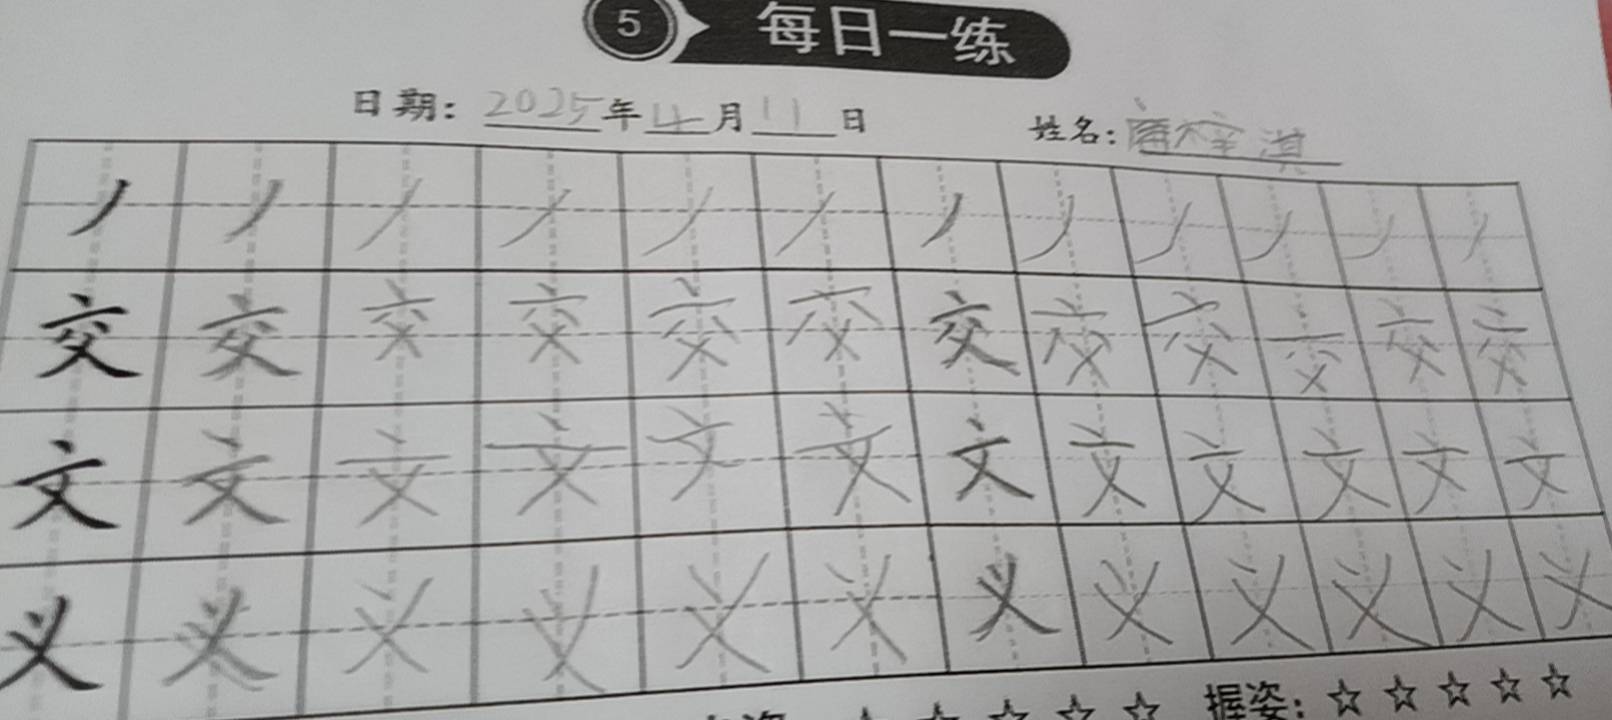 5 每日一练
日期: 2025年4月11日 姓名: 淇
丿 丿 丿 丿 丿 丿 丿 丿 丿 丿 丿 丿
交 交 交 交 交 交 交 交 交 交 交 交
文 文 文 文 文 文 文 文 文 文 文 文
义 义 义 义 义 义 义 义 义 义 义 义
☆ ☆ ☆ ☆ ☆ 握姿: ☆ ☆ ☆ ☆ ☆